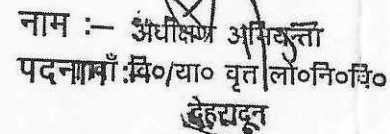 नाम :— अधीक्षण अभियन्ता
पदनाम :वि०/या० वृत लो०नि०वि०
देहरादून